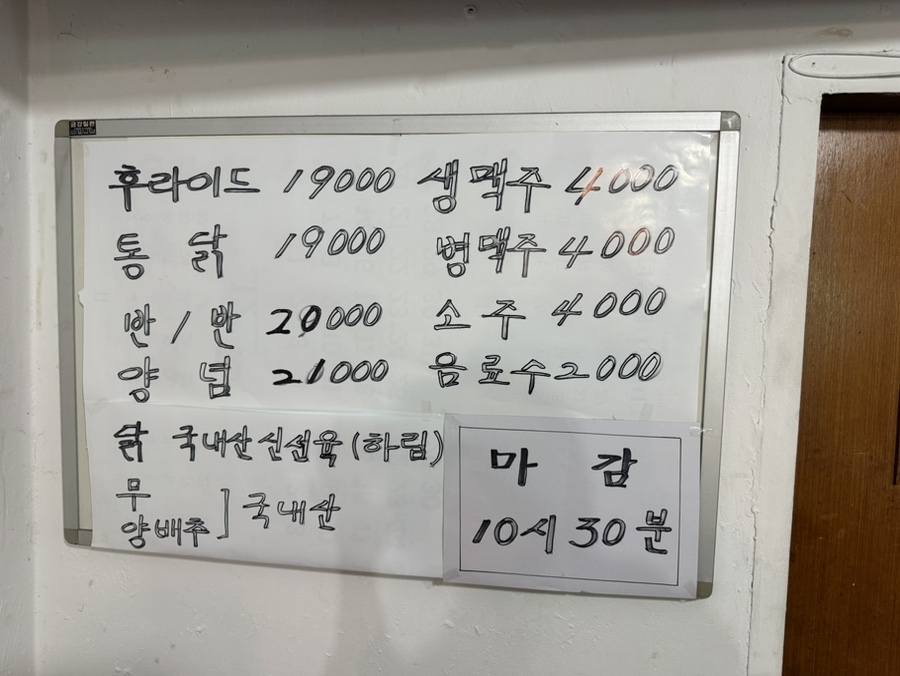 후라이드 19000 생맥주 4000
통 닭 19000 병맥주 4000
반 / 반 20000 소 주 4000
양 념 21000 음료수 2000
닭 국내산 신선육 (하림)
무
양배추 ] 국내산
마 감
10시 30분